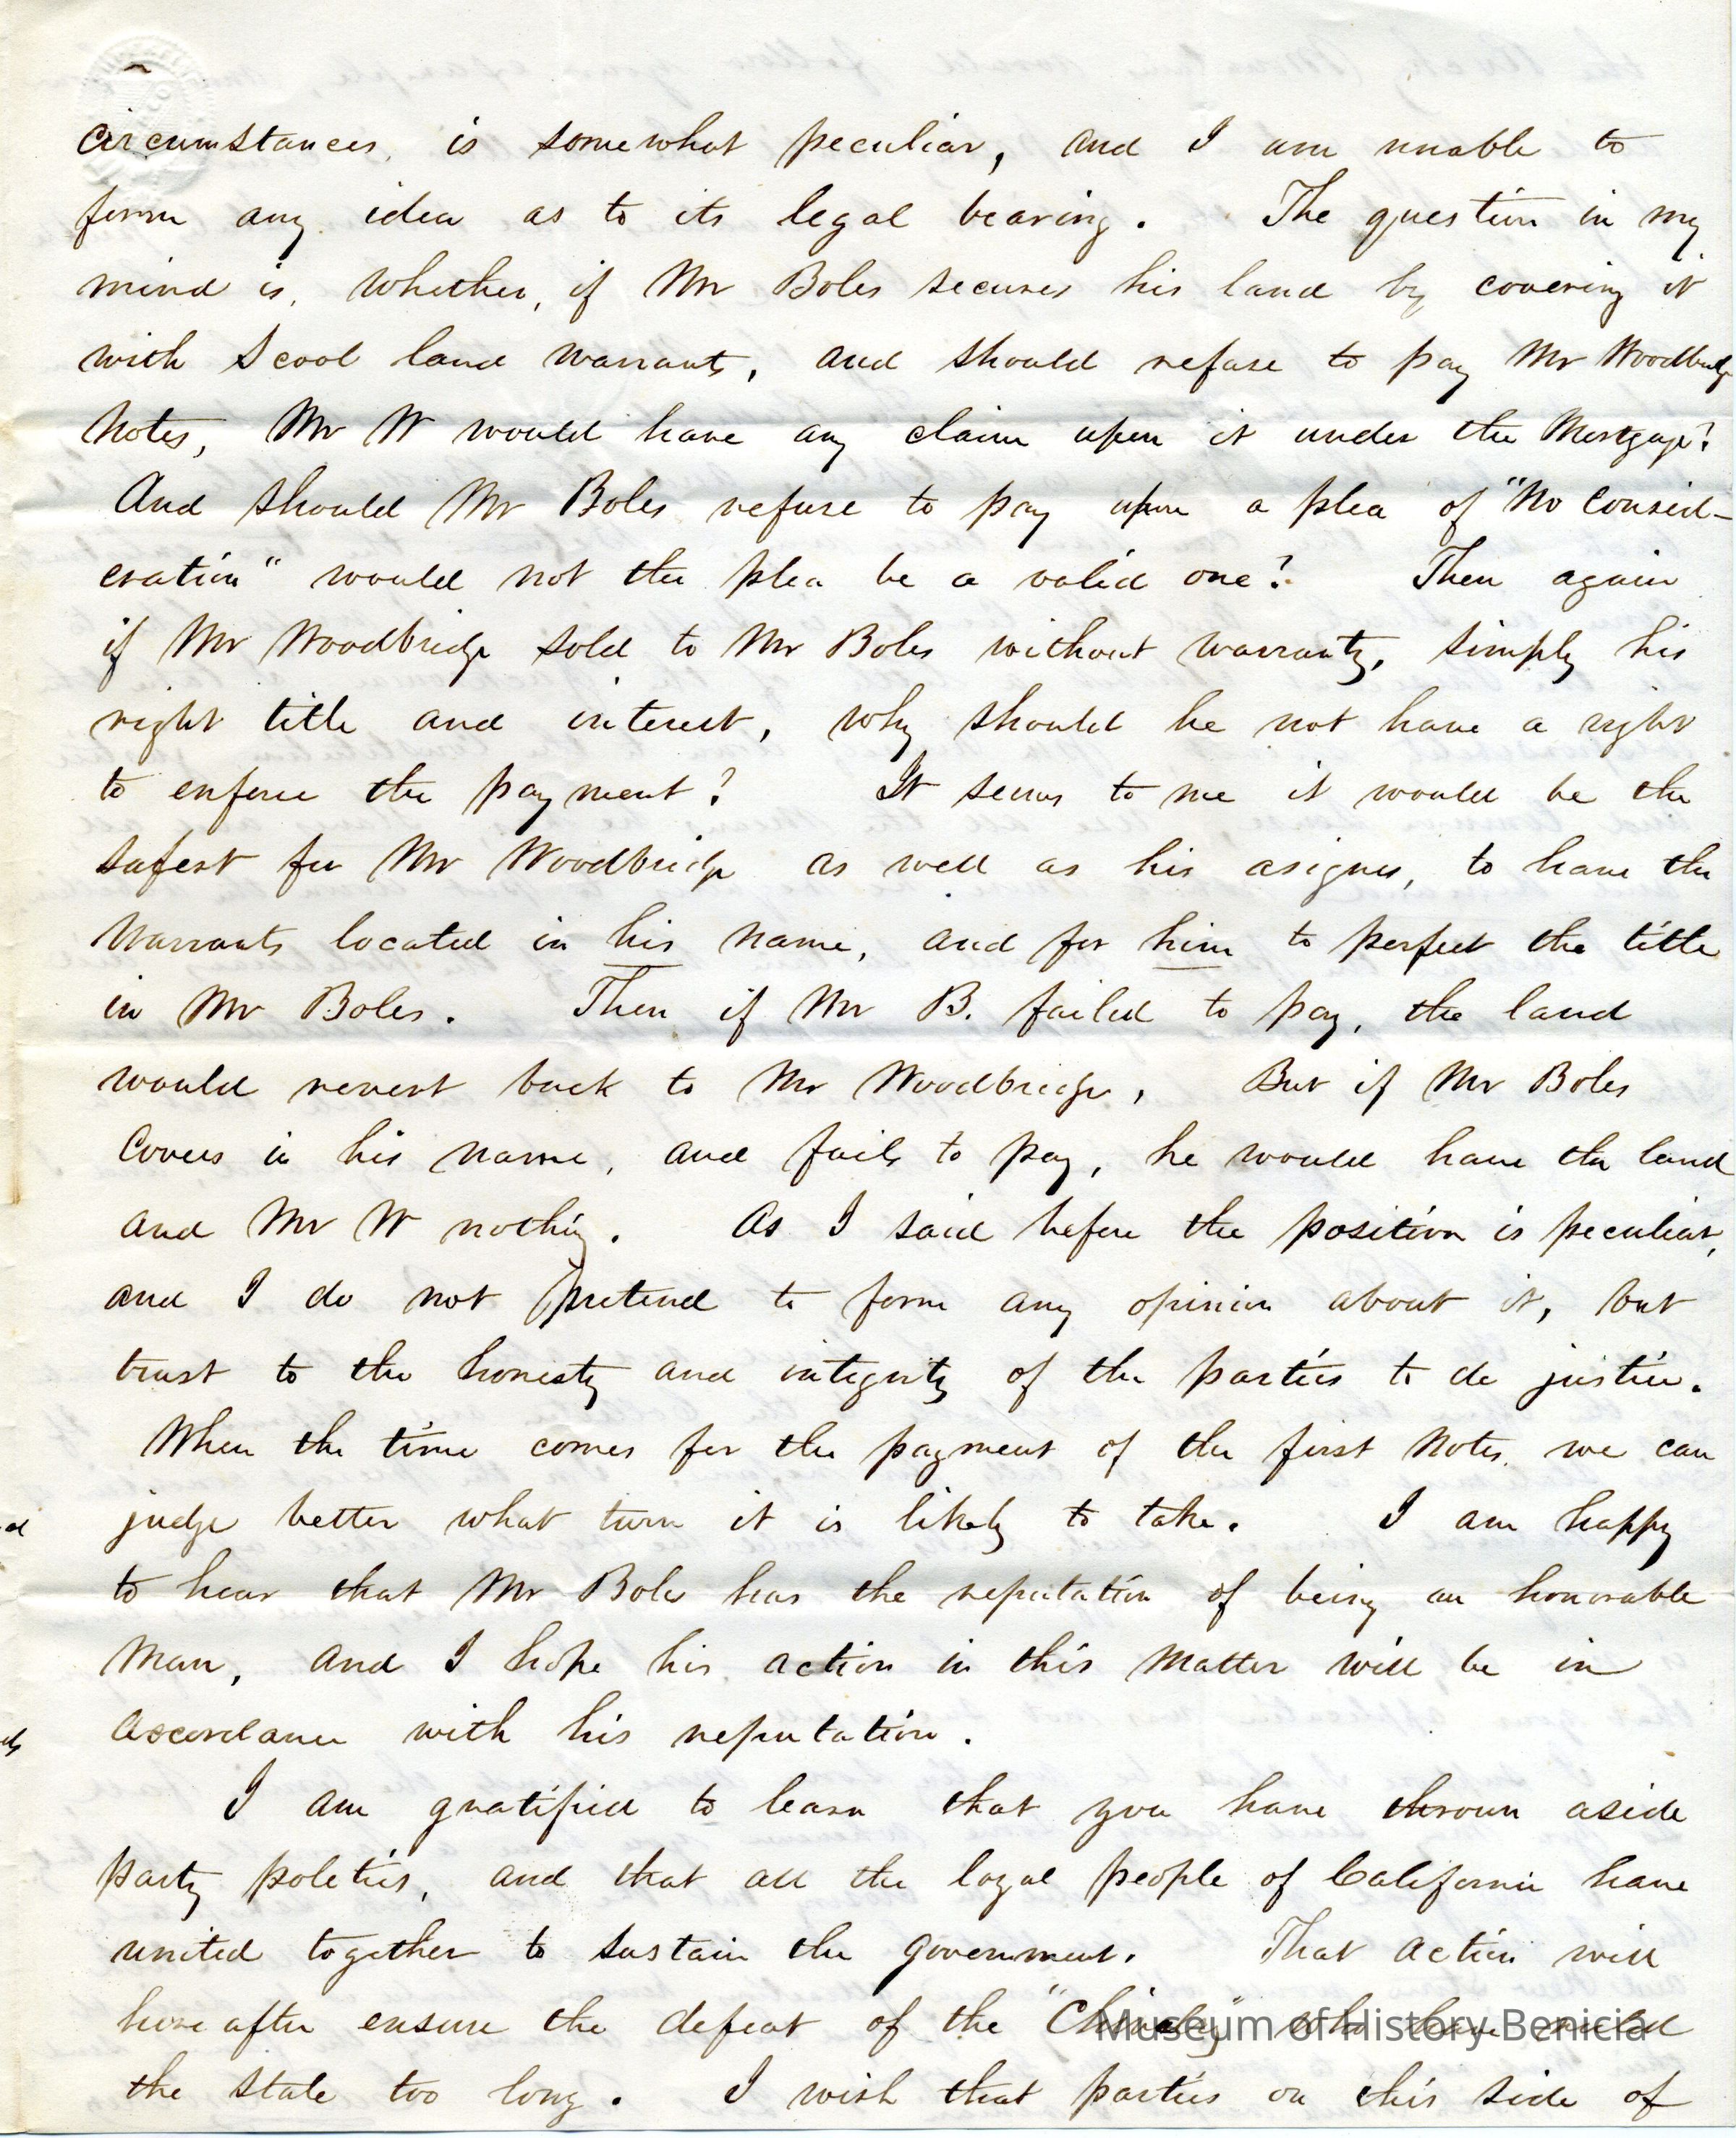 circumstances, is somewhat peculiar, and I am unable to
form any idea as to its legal bearing. The question in my
mind is, whether, if Mr Boles secures his land by covering it
with Scool land warrants, and should refuse to pay Mr Woodbridge
Notes, Mr W would have any claim upon it under the Mortgage?
And should Mr Boles refuse to pay upon a plea of "No Consid-
eration" would not the plea be a valid one? Then again
if Mr Woodbridge sold to Mr Boles without warranty, simply his
right title and interest, why should he not have a right
to enforce the payment? It seems to me it would be the
safest for Mr Woodbridge as well as his asignes, to have the
Warrants located in his name, and for him to perfect the title
in Mr Boles. Then if Mr B. failed to pay, the land
would revert back to Mr Woodbridge, But if Mr Boles
Covers in his name, and fails to pay, he would have the land
and Mr W nothing. As I said before the position is peculiar,
and I do not pretend to form any opinion about it, but
trust to the honesty and integrity of the parties to do justice.
When the time comes for the payment of the first Notes, we can
judge better what turn it is likely to take. I am happy
to hear that Mr Boles has the reputation of being an honorable
Man, and I hope his action in this Matter will be in
Accordance with his reputation.
I am gratified to learn that you have thrown aside
party poletics, and that all the loyal people of California have
united together to sustain the government. That action will
here after ensure the defeat of the "Chivalry" who have ruled
the State too long. I wish that parties on this side of
Museum of History Benicia